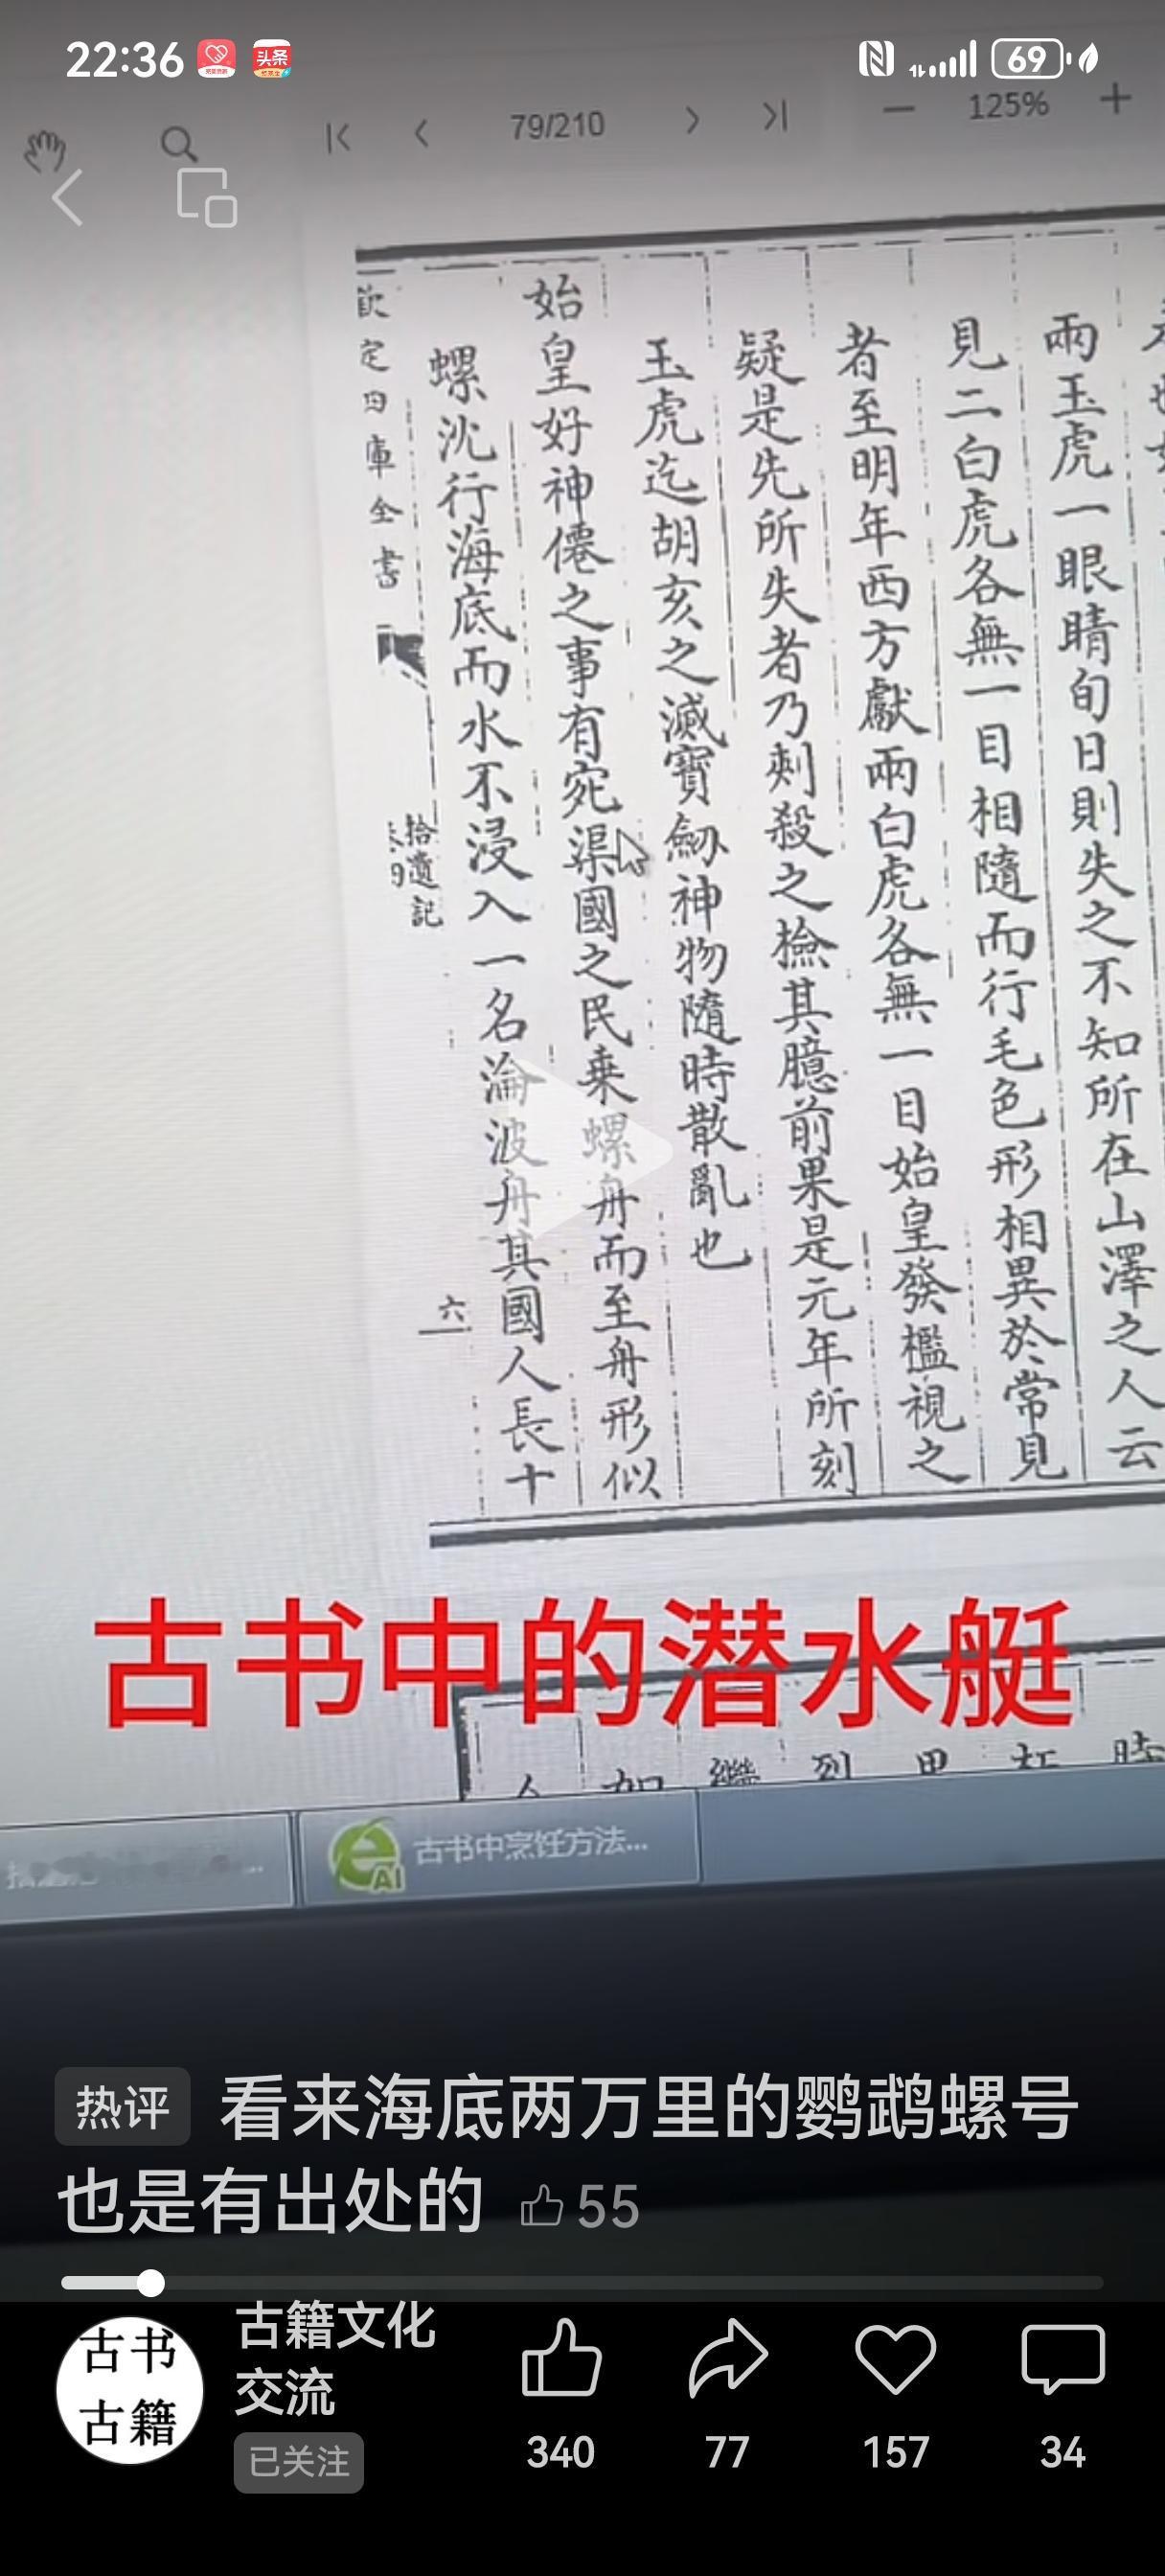 22:36
头条
69
79/210
125%
兩玉虎一眼睛旬日則失之不知所在山澤之人云
見二白虎各無一目相隨而行毛色形相異於常見
者至明年西方獻兩白虎各無一目始皇發檻視之
疑是先所失者乃刺殺之檢其臆前果是元年所刻
玉虎迄胡亥之滅寶劒神物隨時散亂也
始皇好神僊之事有宛渠國之民乗螺舟而至舟形似
螺沈行海底而水不浸入一名淪波舟其國人長十
欽定四庫全書
拾遺記
六
古书中的潜水艇
古书中烹饪方法...
热评 看来海底两万里的鹦鹉螺号
也是有出处的 55
古书
古籍
古籍文化
交流
已关注
340
77
157
34